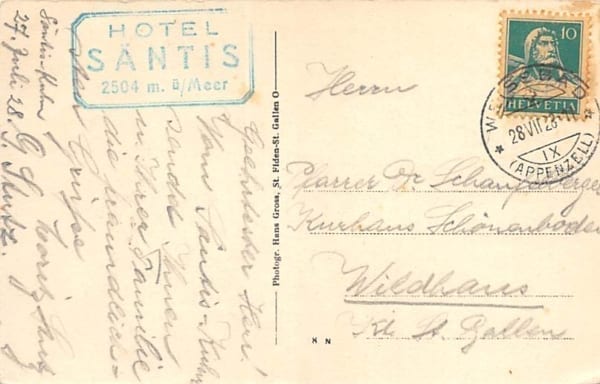 HOTEL
SÄNTIS
2504 m. ü/Meer
Säntis-Kulm
27. Juli 28.
Geehrtester Herr!
Vom Säntis-Kulm
sendet Ihnen
u. Ihrer Familie
die freundlich-
sten Grüsse
Photogr. Hans Gross, St. Fiden-St. Gallen O
K N
10
HELVETIA
28.VII.28
IX
(APPENZELL)
Herrn
Pfarrer Dr. Schaufelberger
Kurhaus Schönenboden
Wildhaus
Kt. St. Gallen